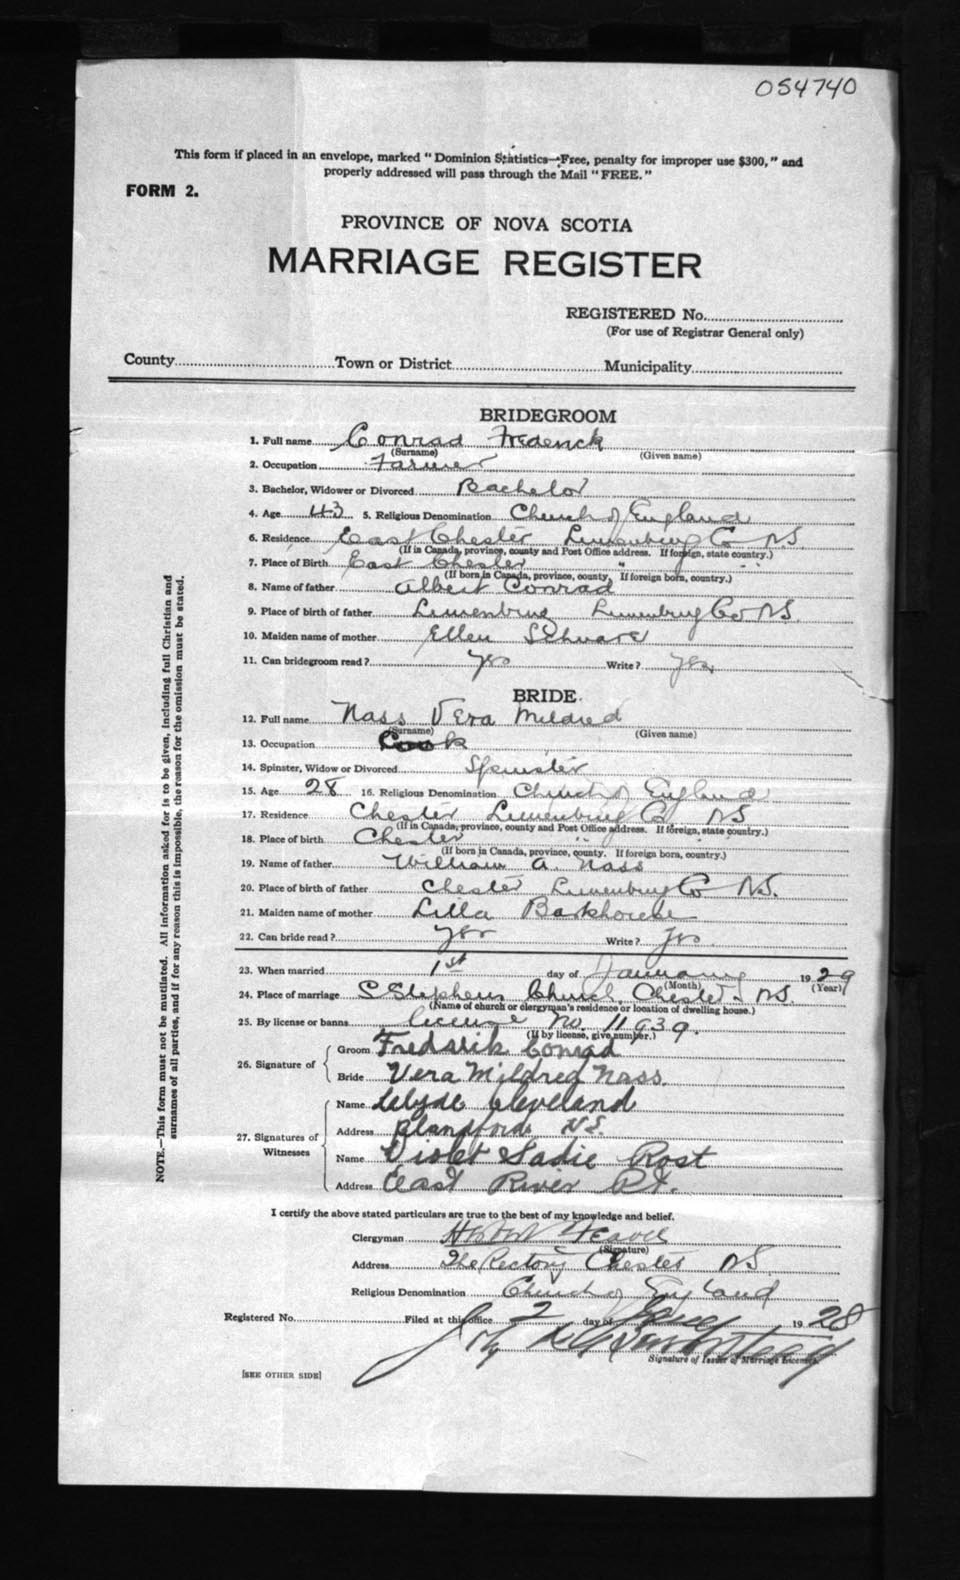 054740
This form if placed in an envelope, marked "Dominion Statistics—Free, penalty for improper use $300," and
properly addressed will pass through the Mail "FREE."
FORM 2.
PROVINCE OF NOVA SCOTIA
MARRIAGE REGISTER
REGISTERED No.
(For use of Registrar General only)
County Town or District Municipality
BRIDEGROOM
1. Full name Conrad Frederick
(Surname) (Given name)
2. Occupation Farmer
3. Bachelor, Widower or Divorced Bachelor
4. Age 43 5. Religious Denomination Church of England
6. Residence East Chester Lunenburg Co N.S.
(If in Canada, province, county and Post Office address. If foreign, state country.)
7. Place of Birth East Chester " "
(If born in Canada, province, county. If foreign born, country.)
8. Name of father Albert Conrad
9. Place of birth of father Lunenburg Lunenburg Co N.S.
10. Maiden name of mother Ellen
11. Can bridegroom read? Yes Write? Yes
BRIDE
12. Full name Nass Vera Mildred
(Surname) (Given name)
13. Occupation Cook
14. Spinster, Widow or Divorced Spinster
15. Age 28 16. Religious Denomination Church of England
17. Residence Chester Lunenburg Co. NS
(If in Canada, province, county and Post Office address. If foreign, state country.)
18. Place of birth Chester " "
(If born in Canada, province, county. If foreign born, country.)
19. Name of father William A. Nass
20. Place of birth of father Chester Lunenburg Co N.S.
21. Maiden name of mother Lilla Barkhouse
22. Can bride read? Yes Write? Yes
23. When married 1st day of January 1929
(Month) (Year)
24. Place of marriage S Stephens Church, Chester NS.
(Name of church or clergyman's residence or location of dwelling house.)
25. By license or banns license No. 11939.
(If by license, give number.)
26. Signature of
Groom Fredsrik Conrad
Bride Vera Mildred Nass.
27. Signatures of Witnesses
Name Clevland
Address Blandford N.S.
Name Violet Sadie Rost
Address East River Pt.
I certify the above stated particulars are true to the best of my knowledge and belief.
Clergyman
(Signature)
Address The Rectory Chester NS.
Religious Denomination Church of England
Registered No. Filed at this office 2 day of 1928
Signature of Issuer of Marriage Licenses.
[SEE OTHER SIDE]
NOTE.—This form must not be mutilated. All information asked for is to be given, including full Christian and
surnames of all parties, and if for any reason this is impossible, the reason for the omission must be stated.